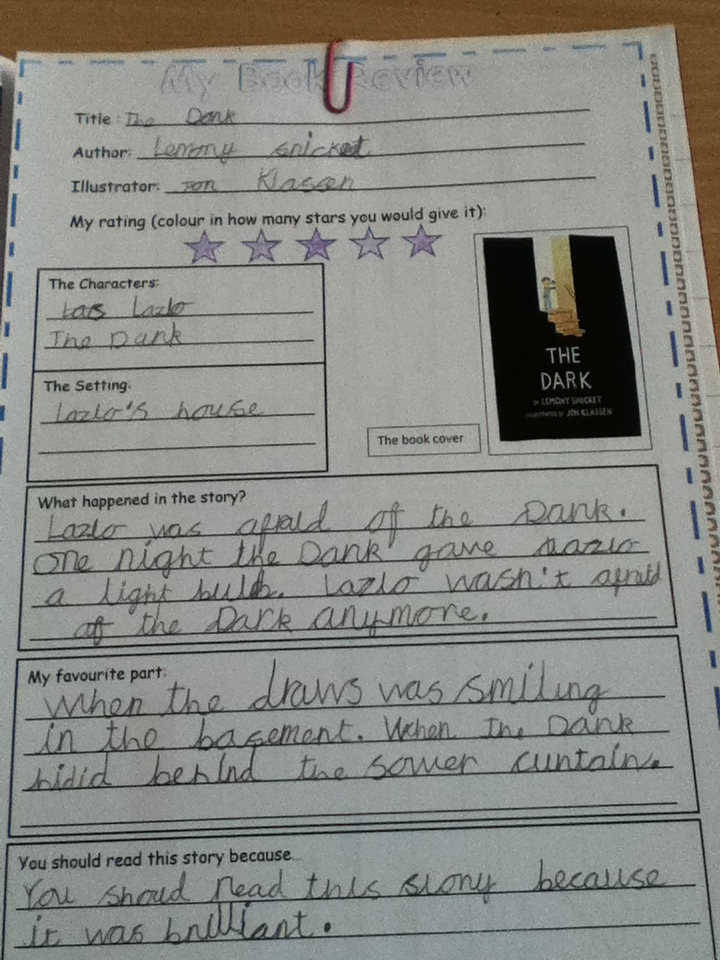 My Book Review
Title: The Dark
Author: Lemony snicket
Illustrator: Jon Klassen
My rating (colour in how many stars you would give it):
The Characters:
Lazlo
The Dark
The Setting:
Lazlo's house
THE
DARK
BY LEMONY SNICKET
ILLUSTRATED BY JON KLASSEN
The book cover
What happened in the story?
Lazlo was afraid of the Dark.
One night the Dark gave Lazlo
a light bulb. Lazlo wasn't afraid
of the Dark anymore.
My favourite part:
When the draws was smiling
in the basement. When The Dark
hidid behind the sower curtain.
You should read this story because...
You shoud read this story because
it was brilliant.